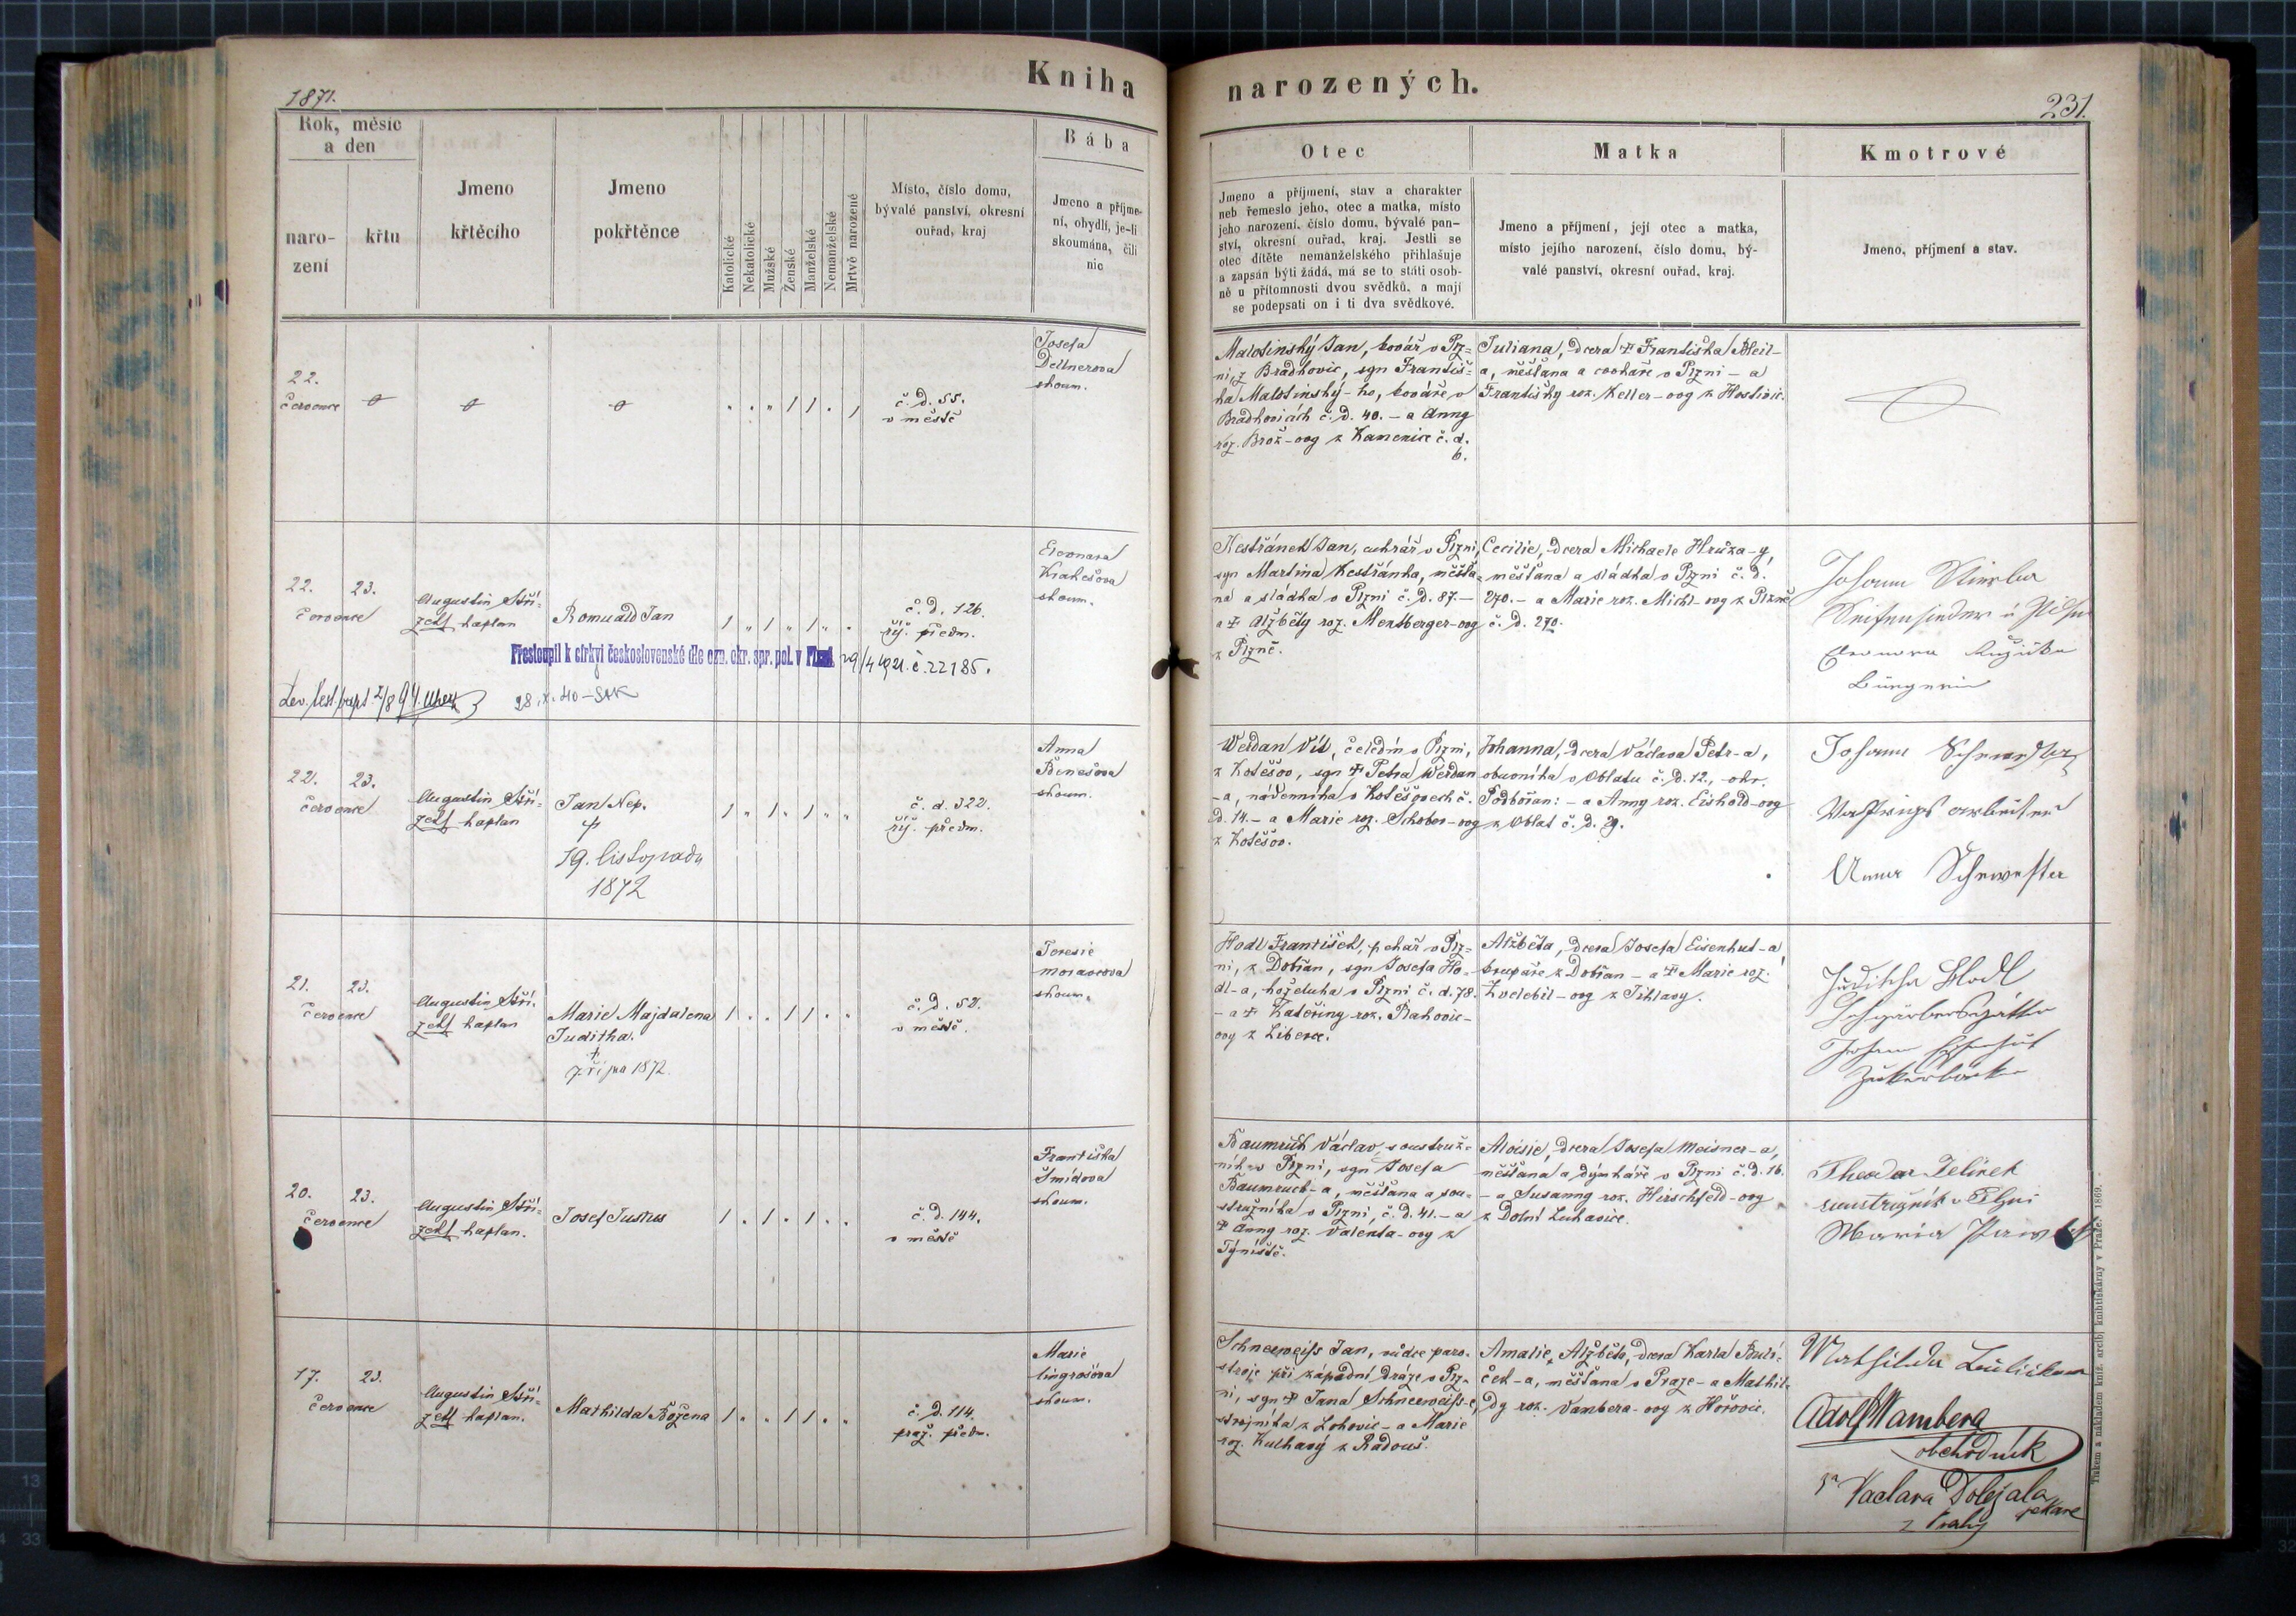 1871.
Kniha
narozených.
231.
Rok, měsíc
a den
naro-
zení
křtu
Jmeno
křtěcího
Jmeno
pokřtěnce
Katolické
Nekatolické
Mužské
Ženské
Manželské
Nemanželské
Mrtvě narozené
Místo, číslo domu,
bývalé panství, okresní
ouřad, kraj
Bába
Jmeno a příjme-
ní, obydlí, je-li
skoumána, čili
nic
Otec
Jmeno a příjmení, stav a charakter
neb řemeslo jeho, otec a matka, místo
jeho narození, číslo domu, bývalé pan-
ství, okresní ouřad, kraj. Jestli se
otec dítěte nemanželského přihlašuje
a zapsán býti žádá, má se to státi osob-
ně u přítomnosti dvou svědků, a mají
se podepsati on i ti dva svědkové.
Matka
Jmeno a příjmení, její otec a matka,
místo jejího narození, číslo domu, bý-
valé panství, okresní ouřad, kraj.
Kmotrové
Jmeno, příjmení a stav.
22.
července
č. d. 55.
v městě
Josefa
Dellnerova
skoum.
Malotinský Jan, kovář v Plz-
ni, z Bradkovic, syn Františ-
ka Malotinský-ho, kováře v
Bradkovicích č. d. 40. – a Anny
roz. Brož-ovy z Kamenice č. d.
6.
Juliana, dcera † Františka Bleil-
a, měšťana a v Plzni – a
Františky roz. Keller-ovy z Hostivic.
22. 23.
července
Augustin Stří-
zek kaplan
Romuald Jan
č. d. 126.
říš. předm.
Eleonara
Krakešova
skoum.
Přestoupil k církvi československé dle ozn. okr. spr. pol. v Plzni 29/4 1921. č. 22185.
28. X. 40 – SAK
Kestřánek Jan, cukrář v Plzni,
syn Martina Kestřánka, měšťa-
na a sládka v Plzni č. d. 87. –
a † Alžběty roz. Mensberger-ovy
z Plzně.
Cecilie, dcera Michaele Hruza-y,
měšťana a sládka v Plzni č. d.
270. – a Marie roz. Michl-ovy z Plzně
č. d. 270.
Johann
Seifensieder in Pilsen
Eleonora Ružička
Bürgerin
22. 23.
července
Augustin Stří-
zek kaplan
Jan Nep.
†
19. listopadu
1872
č. d. 322.
říš. předm.
Anna
Benešova
skoum.
Werdan Vít, čeledín v Plzni,
z Kotěšov, syn † Petra Werdan
-a, nádenníka v Kotěšovech č.
d. 14. – a Marie roz. Schober-ovy
z Kotěšov.
Johanna, dcera Václava Petr-a,
obuvníka v Oblatu č. d. 12., okr.
Podbořan: – a Anny roz. Eishold-ovy
z Oblat č. d. 29.
Johann Schwester
Anna Schwester
21. 23.
července
Augustin Stří-
zek kaplan
Marie Majdalena
Juditha.
†
7. října 1872.
č. d. 52.
v městě.
Teresie
Moravcova
skoum.
Hodl František, pekař v Plz-
ni, z Dobřan, syn Josefa Ho-
dl-a, koželuha v Plzni č. d. 78.
– a † Kateřiny roz. Rakovic-
ovy z Liberce.
Alžběta, dcera Josefa Eisenhut-a,
krupaře z Dobřan – a † Marie roz.
Zvelebil-ovy z Jihlavy.
Juditha Hodl
Lohgärbersgattin
Johann Eisenhut
Zukerbäcker
20. 23.
července
Augustin Stří-
zek kaplan.
Josef Justus
č. d. 144.
v městě
Františka
Šmídova
skoum.
Baumruk Václav, soustruž-
ník v Plzni, syn Josefa
Baumruck-a, měšťana a sou-
stružníka v Plzni, č. d. 41. – a
† Anny roz. Valenta-ovy z
Týniště.
Aloisie, dcera Josefa Meisner-a,
měšťana a dýmkáře v Plzni č. d. 16.
– a Susanny roz. Hirschfeld-ovy
z Dolní Lukavice.
Theodor Jelinek
soustružník v Plzni
Maria
17. 23.
července
Augustin Stří-
zek kaplan.
Mathilda Božena
č. d. 114.
praž. předm.
Marie
Lingrošova
skoum.
Schneeweiss Jan, vůdce paro-
stroje při západní dráze v Plz-
ni, syn † Jana Schneeweiss-e,
strojníka z Lohovic – a Marie
roz. Kulhavý z Radouš.
Amalie, Alžběta, dcera Karla Bulí-
ček-a, měšťana v Praze – a Mathil-
dy roz. Vambera-ovy z Hořovic.
Mathilda Bulíčkova
Adolf Wambera
obchodník
za Vaclava Doležala
pekaře
z Prahy
Tiskem a nákladem kníž. arcib. knihtiskárny v Praze. 1869.